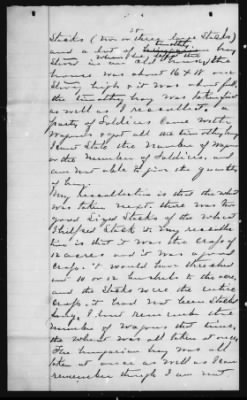 Stacks (two or three large Stacks)
and a lot of timothy hay
Stored in an old house, the
house was about 16 x 18 one
Story high & it was full,
the timothy hay was taken
as well as I recollect, a
party of Soldiers Came with
Wagons & got all the timothy hay
I cant State the Number of Wagons
or the Number of Soldiers, and
am not able to give the quantity
of hay.
My recollection is that the wheat
was taken next. there was two
good Sized Stacks of the wheat
I helped Stack it. My recollec
tion is that it was the crop of
12 acres and it was a good
Crop. it would have thrashed
out 10 or 12 bushels to the acre,
and the Stacks were the entire
Crop. it had not been Stacked
long. I cant remember the
Number of Wagons that time,
the wheat was all taken at once,
The hungarian hay was all
taken at once as well as I can
remember though I am not